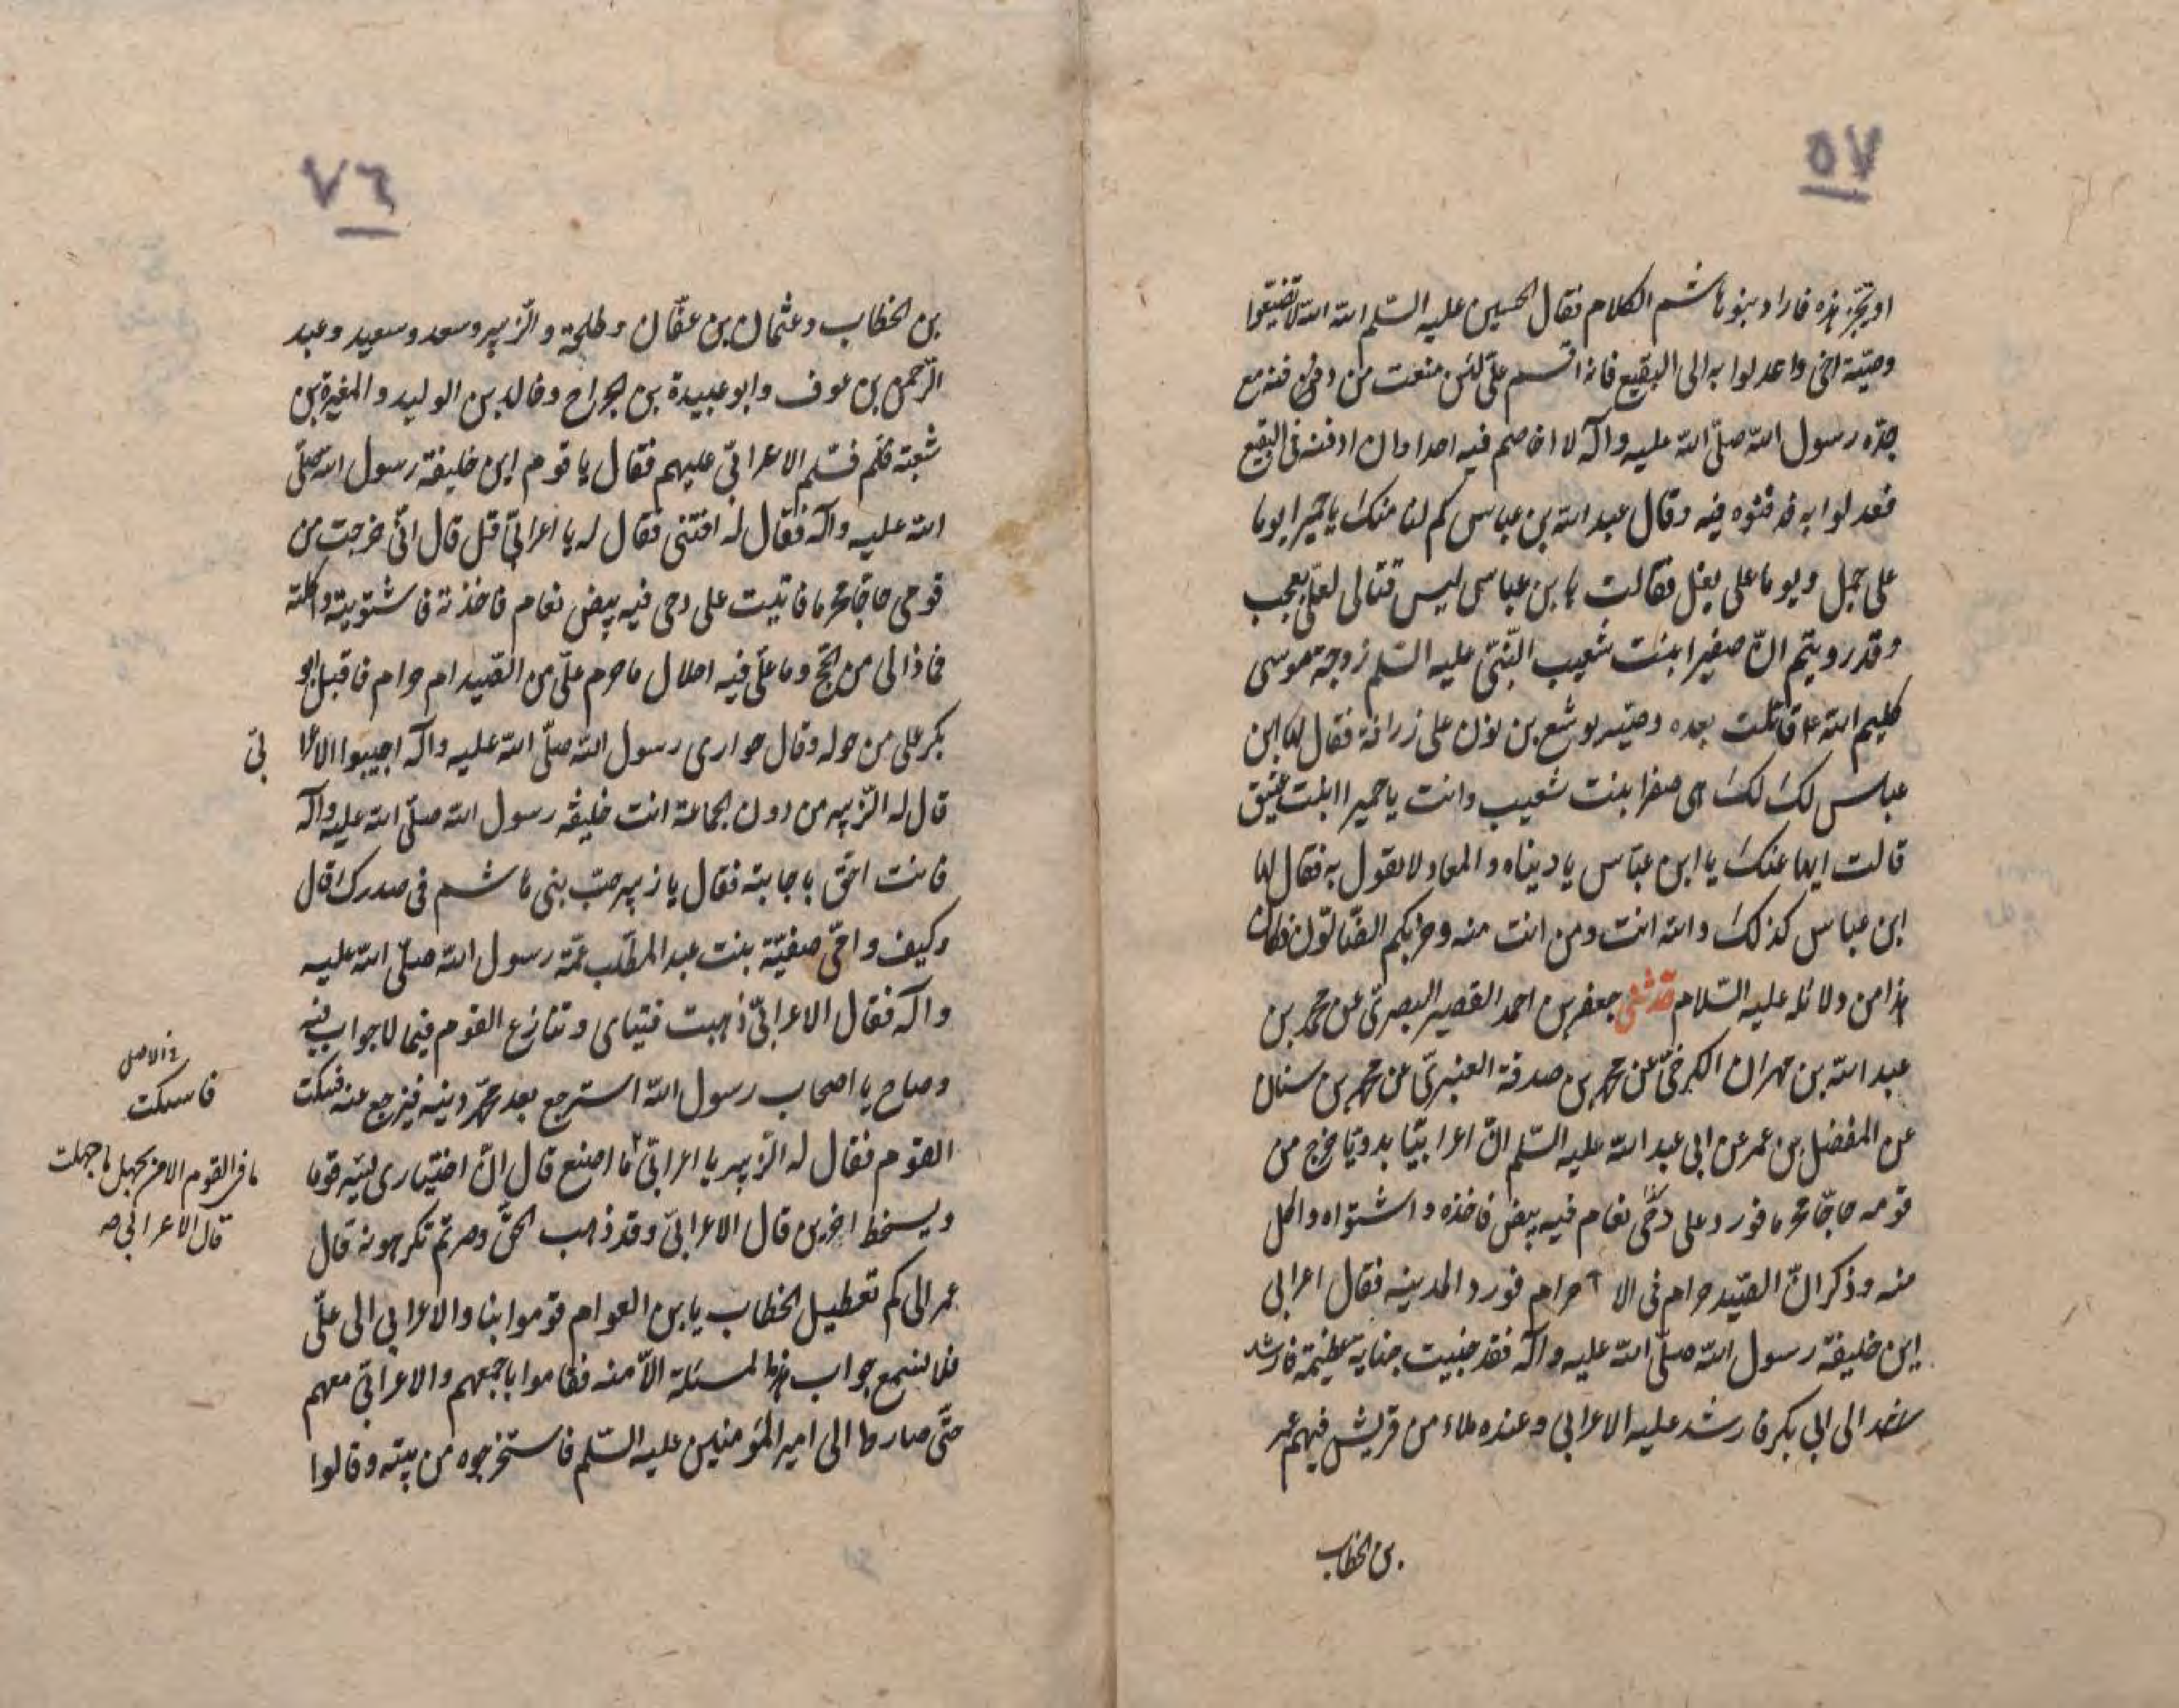 ٥٧
او تجز هذه فاراد بنو هاشم الكلام فقال الحسين عليه السلم الله الله لا تضيعوا
وصيّة اخى واعدلوا به الى البقيع فانه اقسم علىّ لئن منعت من دفنه مع
جدّه رسول الله صلّى الله عليه وآله لا اخاصم فيه احدا وان ادفنه فى البقيع
فعدلوا به فدفنوه فيه وقال عبد الله بن عباس كم لنا منك يا حميرا يوما
على جمل ويوما على بغل فقالت يا بن عباس ليس قتالى لعلى بعجب
وقد رويتم انّ صفيرا ابنت شعيب النّبىّ عليه السّلم زوجة موسى
كليم الله ع قاتلت بعده وصيّه يوشع بن نون على زرافة فقال لها ابن
عباس لك لك هى صفرا بنت شعيب وانت يا حميرا ابنت عتيق
قالت ايها عنك يا ابن عبّاس يا ديناه والمعاد لا نقول به فقال لها
ابن عباس كذلك والله انت ومن انت منه وحزبكم الضّالّون فكان
هذا من دلائله عليه السّلام حدثنى جعفر بن احمد القصير البصرىّ عن محمد بن
عبد الله بن مهران الكرخىّ عن محمد بن صدقة العنبرىّ عن محمد بن سنان
عن المفضل بن عمر عن ابى عبد الله عليه السّلم انّ اعرابيّا بدويّا خرج من
قومه حاجّا محرما فورد على دحىّ نعام فيه بيض فاخذه واشتواه واكل
منه وذكر انّ الصّيد حرام فى الاحرام فورد المدينه فقال اعرابى
اين خليفة رسول الله صلّى الله عليه وآله فقد جنيت جناية عظيمة فارشد
الى ابى بكر فارشد عليه الاعرابى وعنده ملاء من قريش فيهم عمر
بن الخطاب
٧٦
بن الخطاب وعثمان بن عفّان وطلحة والزّبير وسعد وسعيد وعبد
الرّحمن بن عوف وابو عبيدة بن الجراح وخالد بن الوليد والمغيرة بن
شعبة فسلّم الاعرابىّ عليهم فقال يا قوم اين خليفة رسول الله صلّى
الله عليه وآله فقال له افتنى فقال له يا اعرابىّ قل قال انّى خرجت من
قومى حاجّا محرما فاتيت على دحى فيه بيض نعام فاخذته فاشتويته واكلته
فماذا لى من الحجّ وما علىّ فيه احلال ما حرم علىّ من الصّيد ام حرام فاقبل ابو
بكر على من حوله وقال حوارى رسول الله صلّى الله عليه وآله اجيبوا الاعرا
بى
قال له الزّبير من دون الجماعة انت خليفة رسول الله صلّى الله عليه وآله
فانت احقّ باجابته فقال يا زبير حبّ بنى هاشم فى صدرك قال
وكيف وامّى صفيّة بنت عبد المطّلب عمّة رسول الله صلّى الله عليه
وآله فقال الاعرابىّ ذهبت فتياى وتنازع القوم فيما لا جواب فيه
وصاح يا اصحاب رسول الله استرجع بعد محمّد دينه فيرجع عنه فسكت
القوم فقال له الزّبير يا اعرابىّ ما اصنع قال انّ اختيارى قوما
ويسخط اخرين قال الاعرابىّ وقد ذهب الحقّ وصرتم تكرهونه قال
عمر الى كم تعطيل الخطاب يا بن العوام قوموا بنا والاعرابى الى علىّ
فلا نسمع جواب هذه المسئلة الّا منه فقاموا باجمعهم والاعرابىّ معهم
حتّى صاروا الى امير المؤمنين عليه السّلم فاستخرجوه من بيته وقالوا
فى الاصل
فاسكت
ما فى القوم الا من يجهل ما جهلت
قال الاعرابى